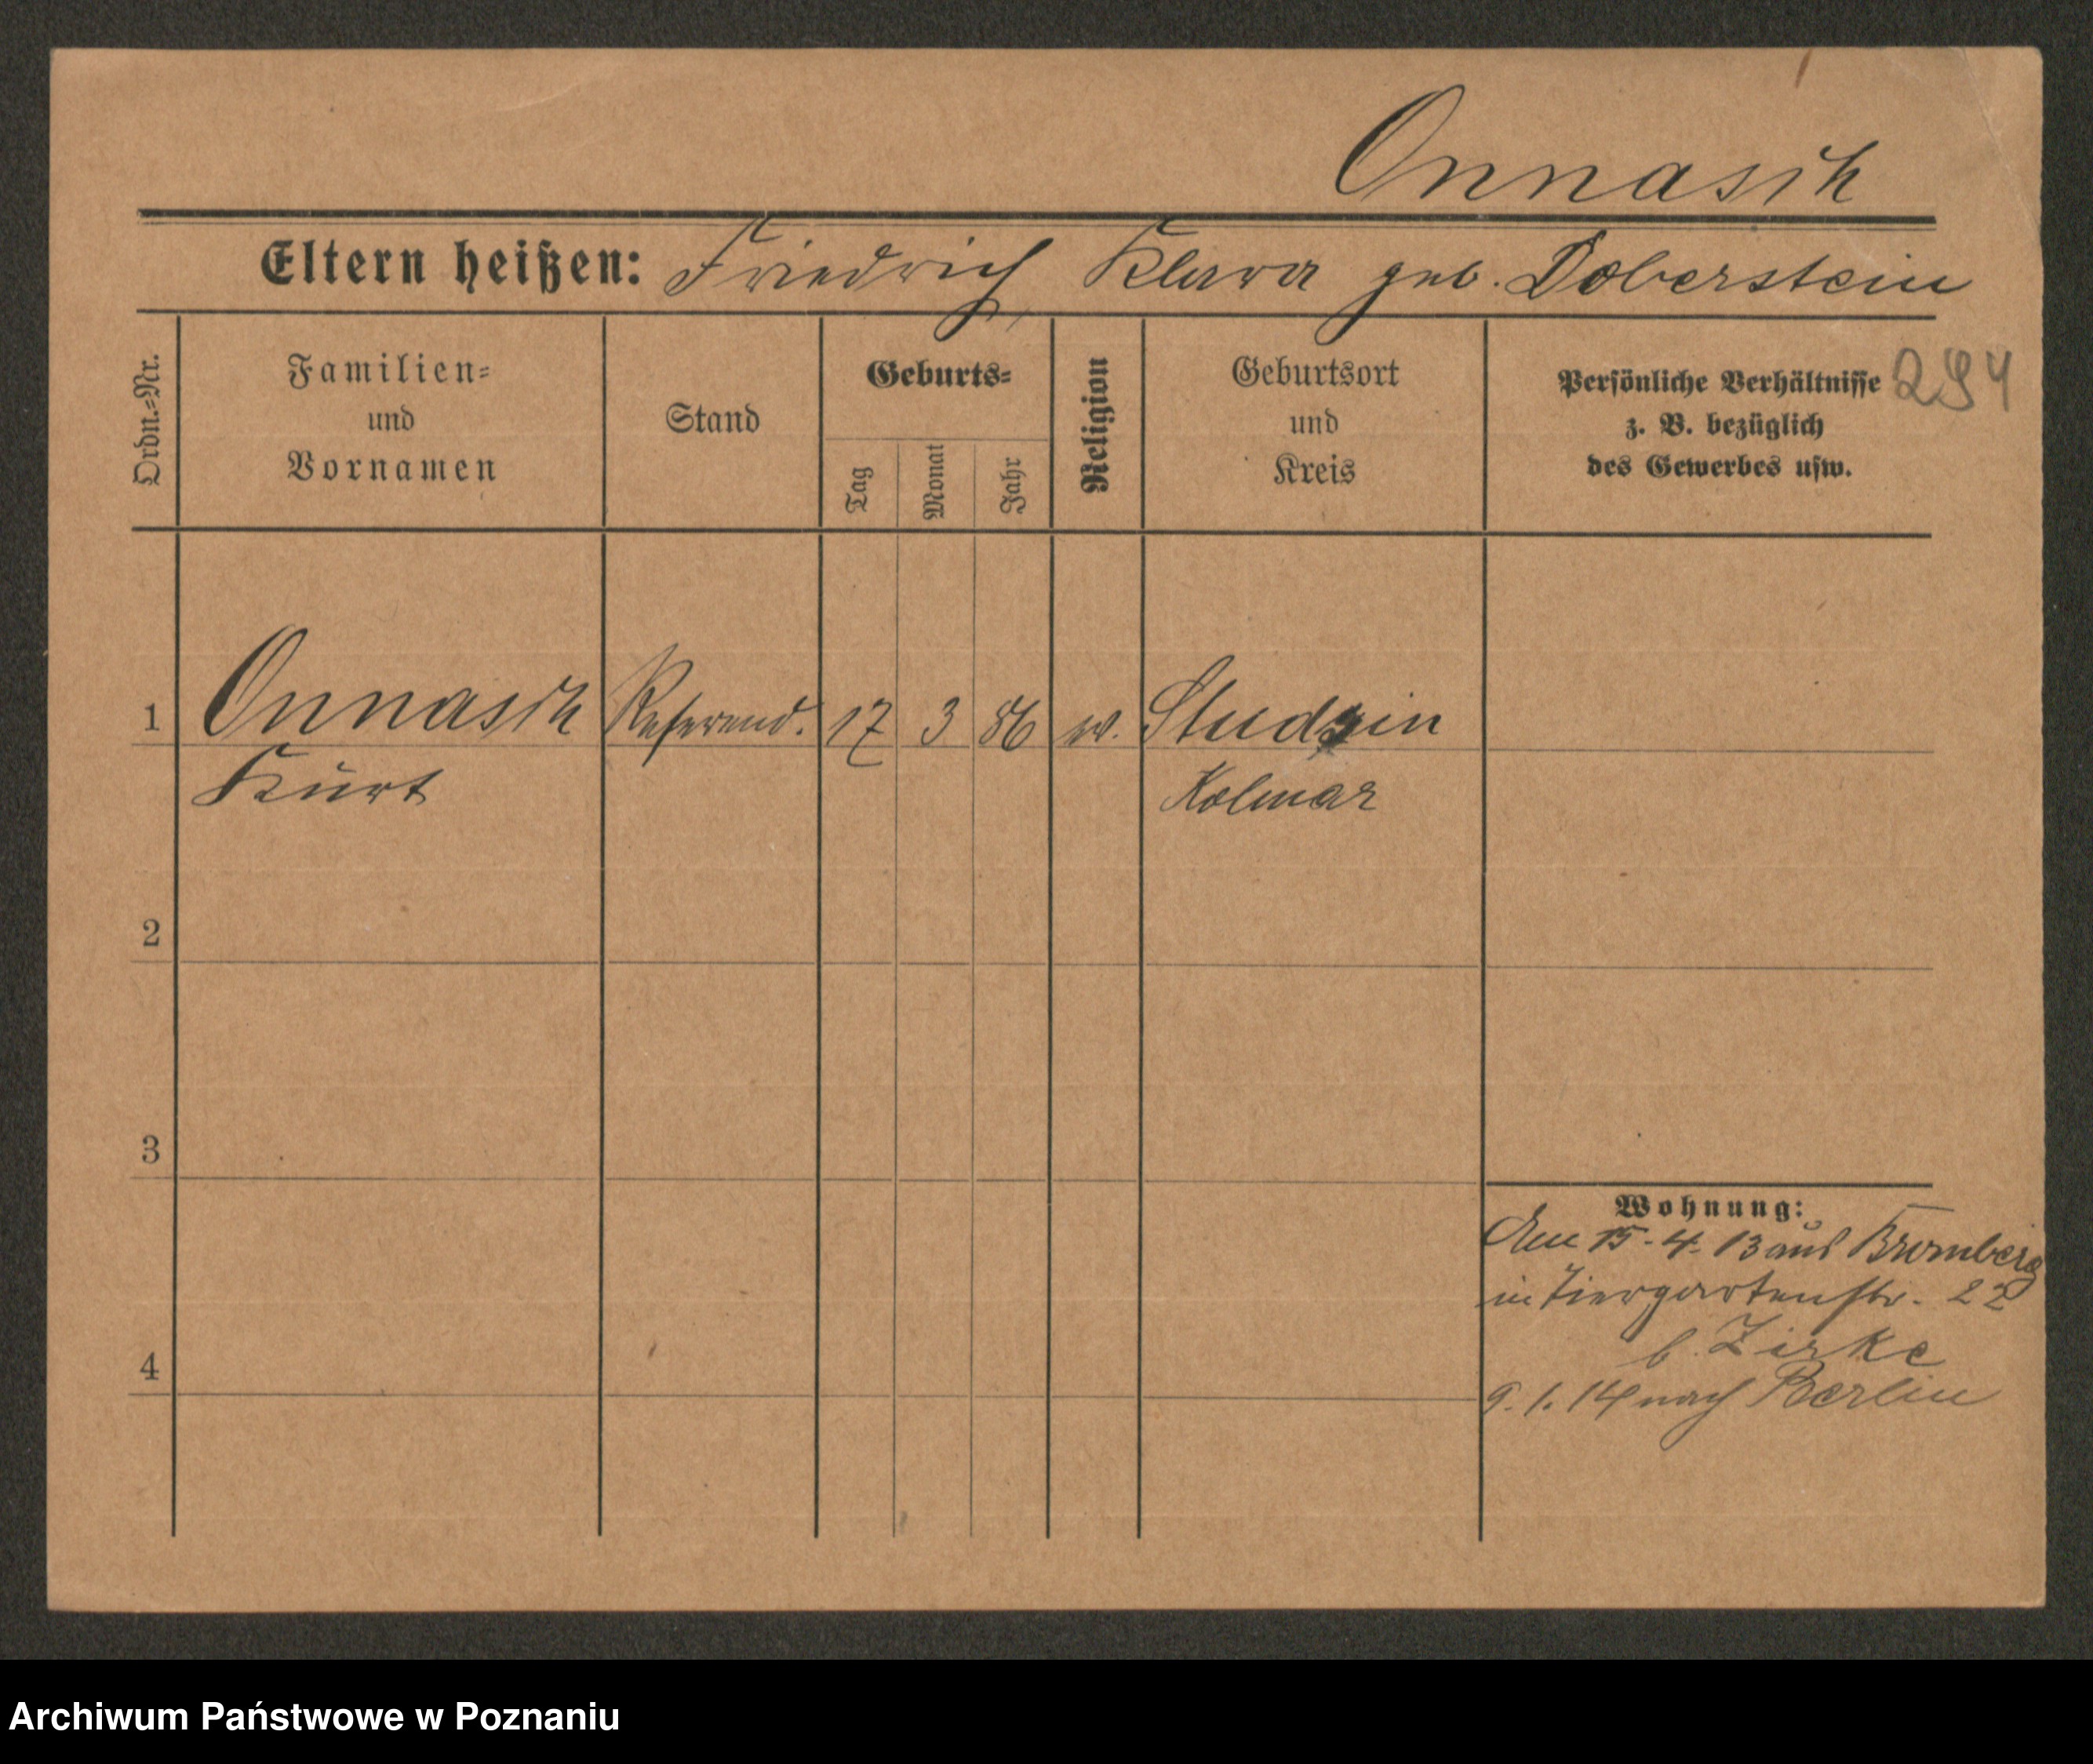 Onnasch
Eltern heißen: Friedrich, Klara geb. Doberstein
Ordn.=Nr.
Familien=
und
Vornamen
Stand
Geburts=
Tag
Monat
Jahr
Religion
Geburtsort
und
Kreis
Persönliche Verhältnisse
z. B. bezüglich
des Gewerbes usw.
294
1 Onnasch Referend. 17 3 86 ev. Studzin
Kurt Kolmar
2
3
4
Wohnung:
Am 15.4.13 aus Bromberg
in Tiergartenstr. 22
b. Zirke
9.1.14 nach Berlin
Archiwum Państwowe w Poznaniu